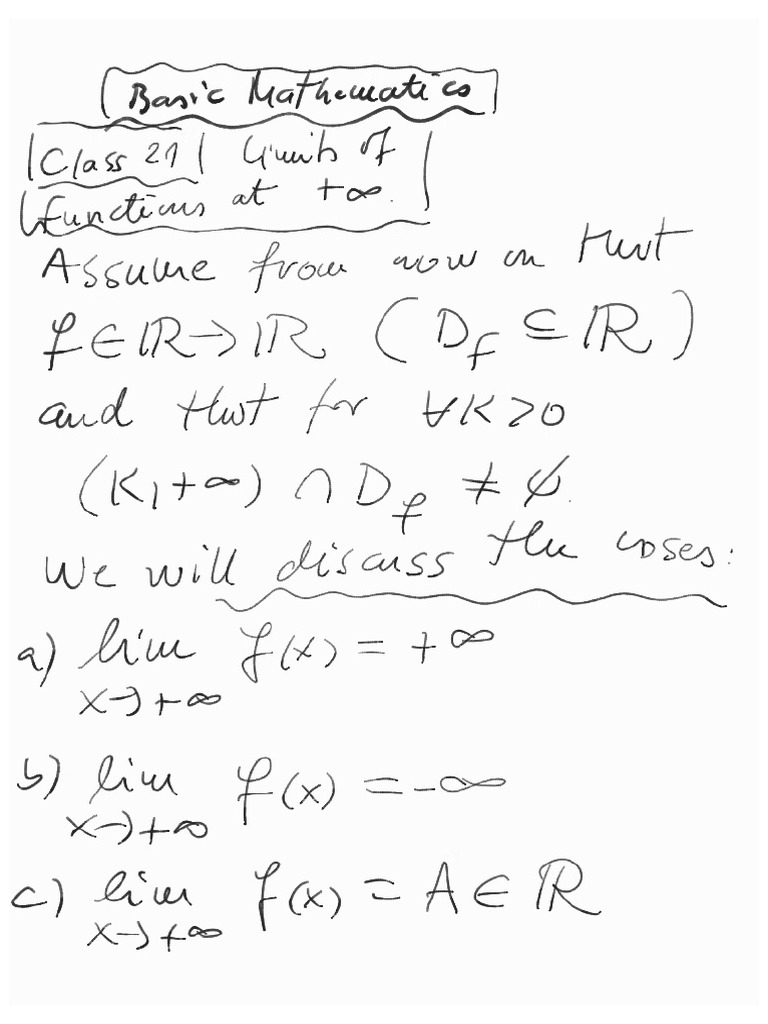 Basic Mathematics
Class 21 Limits of
functions at +∞.
Assume from now on that
f∈ℝ→ℝ (D_f ⊆ ℝ)
and that for ∀K>0
(K,+∞) ∩ D_f ≠ ∅.
We will discuss the cases:
a) lim f(x) = +∞
x→+∞
b) lim f(x) = -∞
x→+∞
c) lim f(x) = A ∈ ℝ
x→+∞